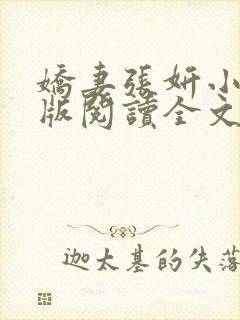 嬌妻張妍小
版閱讀全文
迦太基的失落